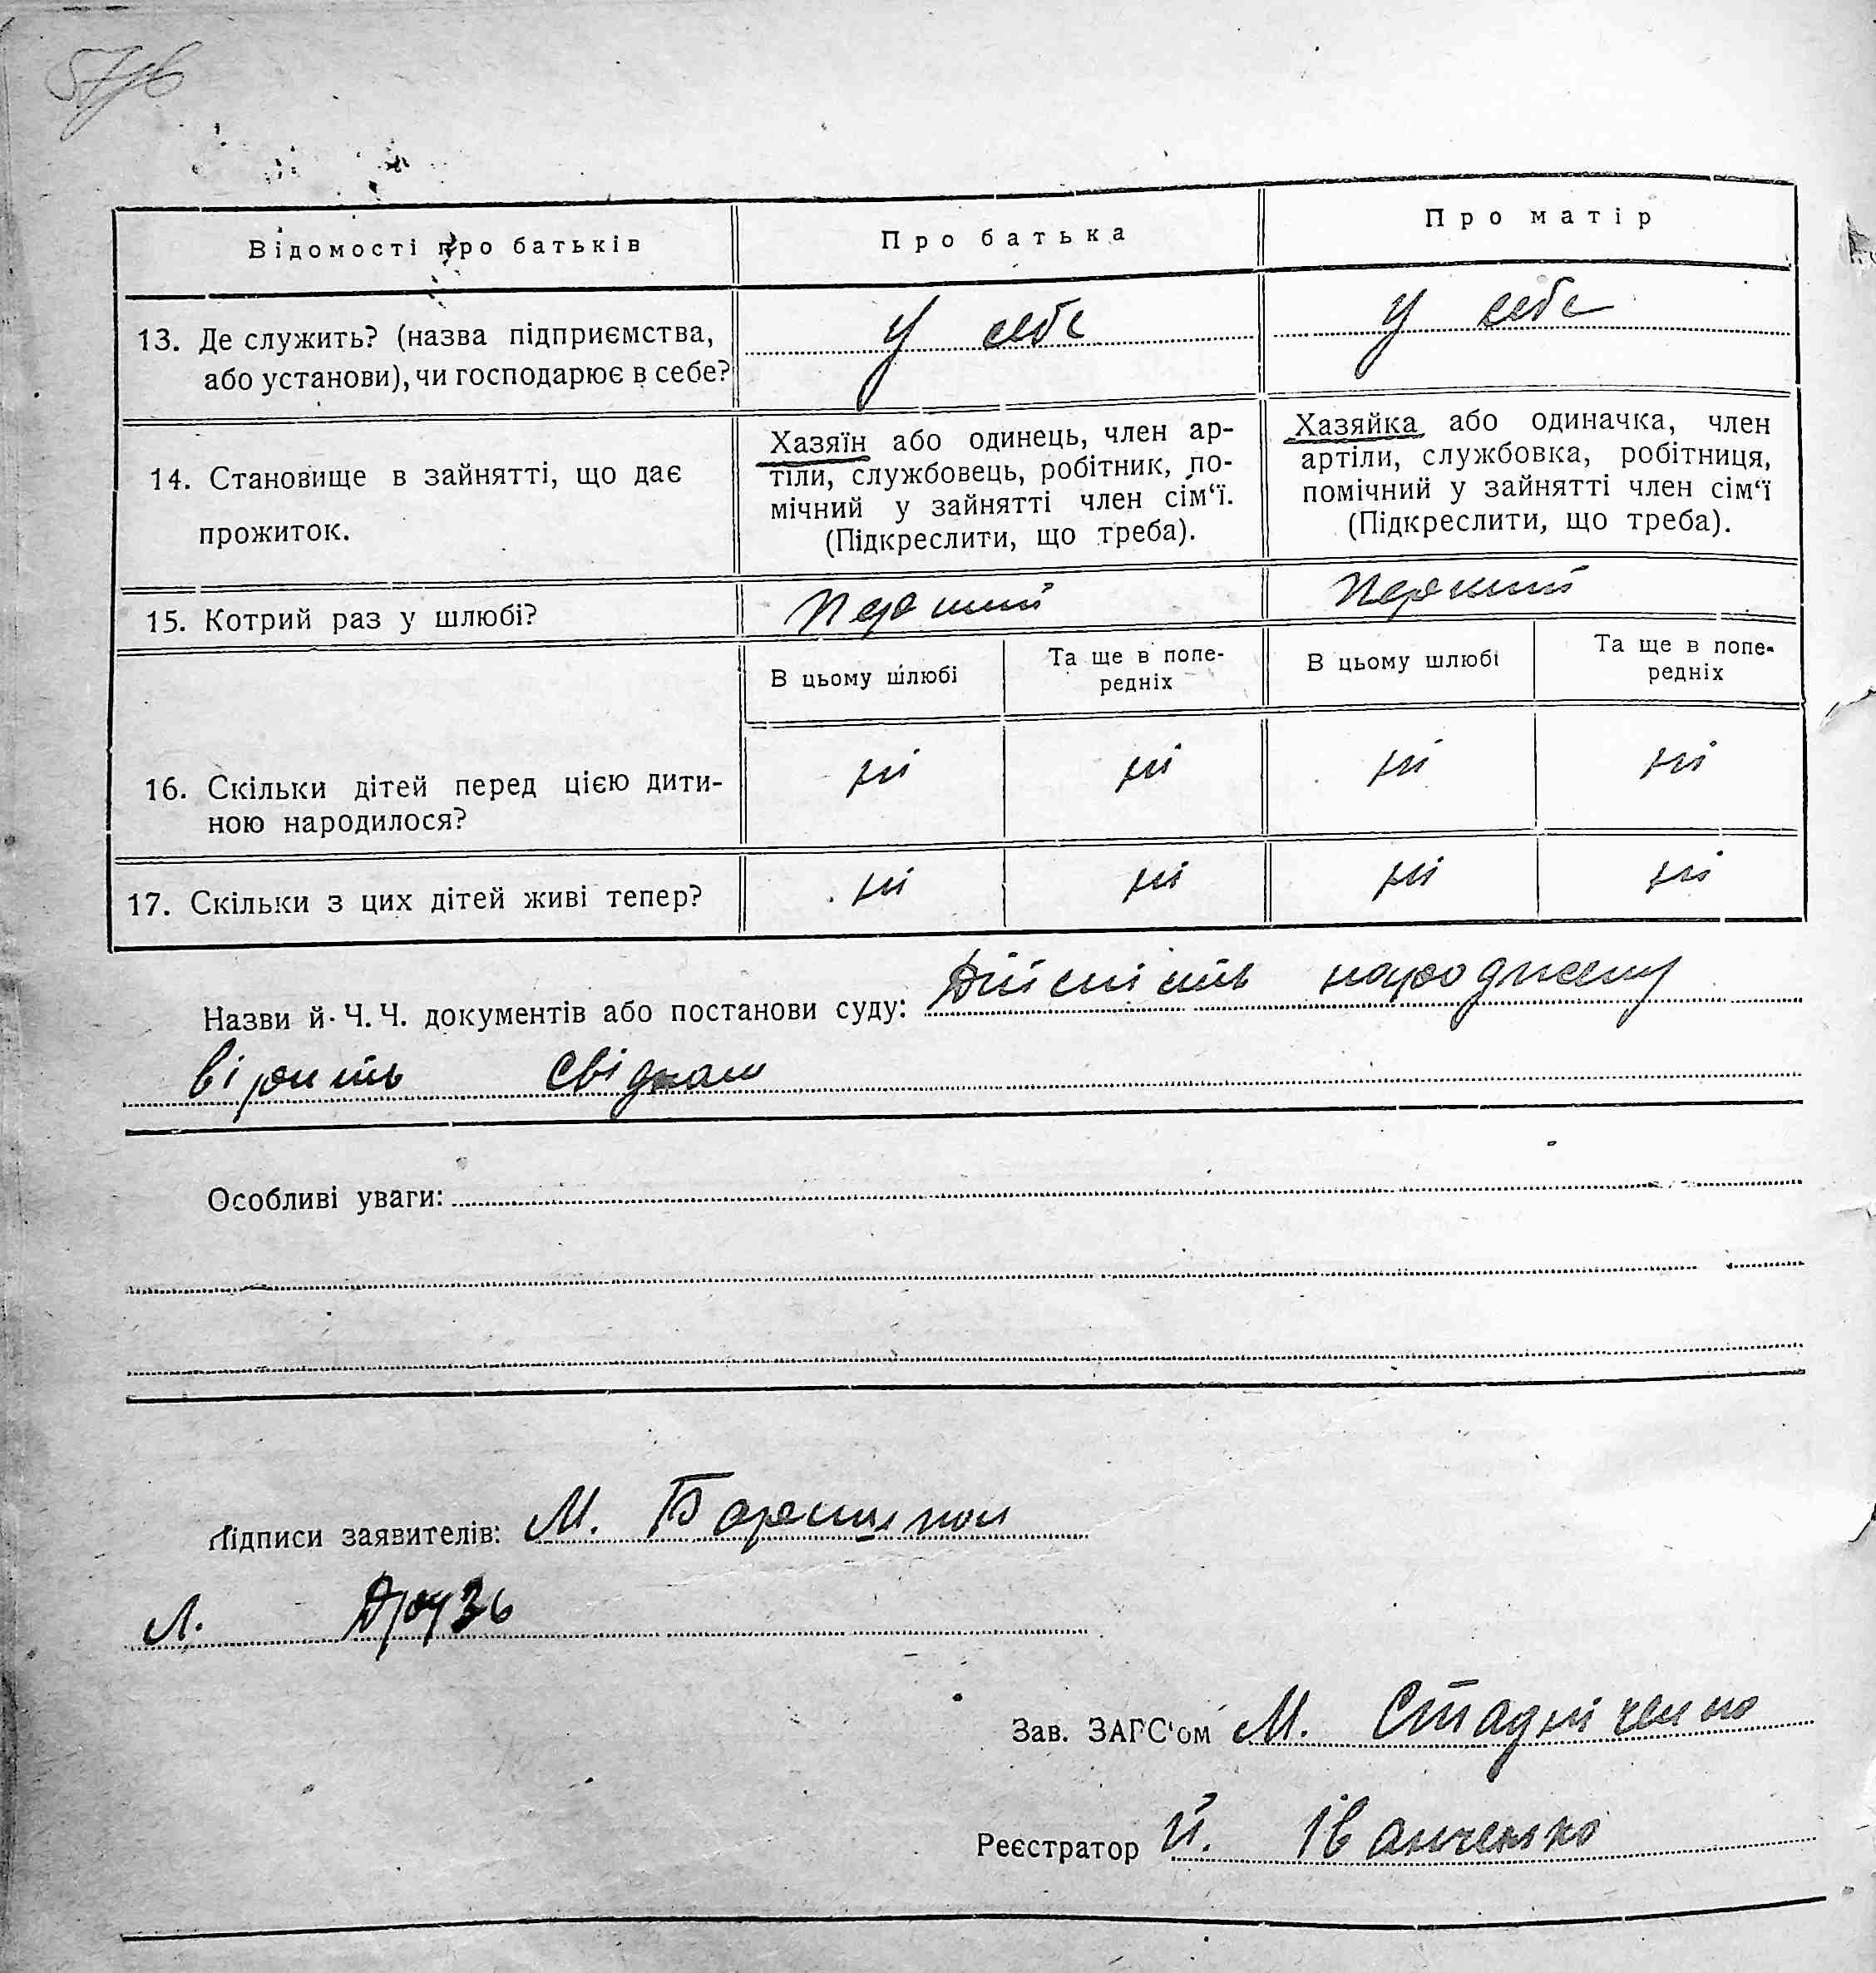 Відомості про батьків
Про батька
Про матір
13. Де служить? (назва підприємства, або установи), чи господарює в себе?
У себе
У себе
14. Становище в зайнятті, що дає прожиток.
Хазяїн або одинець, член ар-
тіли, службовець, робітник, по-
мічний у зайнятті член сім‘ї.
(Підкреслити, що треба).
Хазяйка або одиначка, член
артіли, службовка, робітниця,
помічний у зайнятті член сім‘ї
(Підкреслити, що треба).
15. Котрий раз у шлюбі?
Перший
Перший
В цьому шлюбі
Та ще в попе-
редніх
В цьому шлюбі
Та ще в попе-
редніх
16. Скільки дітей перед цією дити-
ною народилося?
ні ні ні ні
17. Скільки з цих дітей живі тепер?
ні ні ні ні
Назви й Ч. Ч. документів або постанови суду: Дійсність
вірить свідкам
Особливі уваги:
Підписи заявителів: М.
Л. Друзь
Зав. ЗАГС‘ом М. Стадніченко
Реєстратор Й. Іванченко